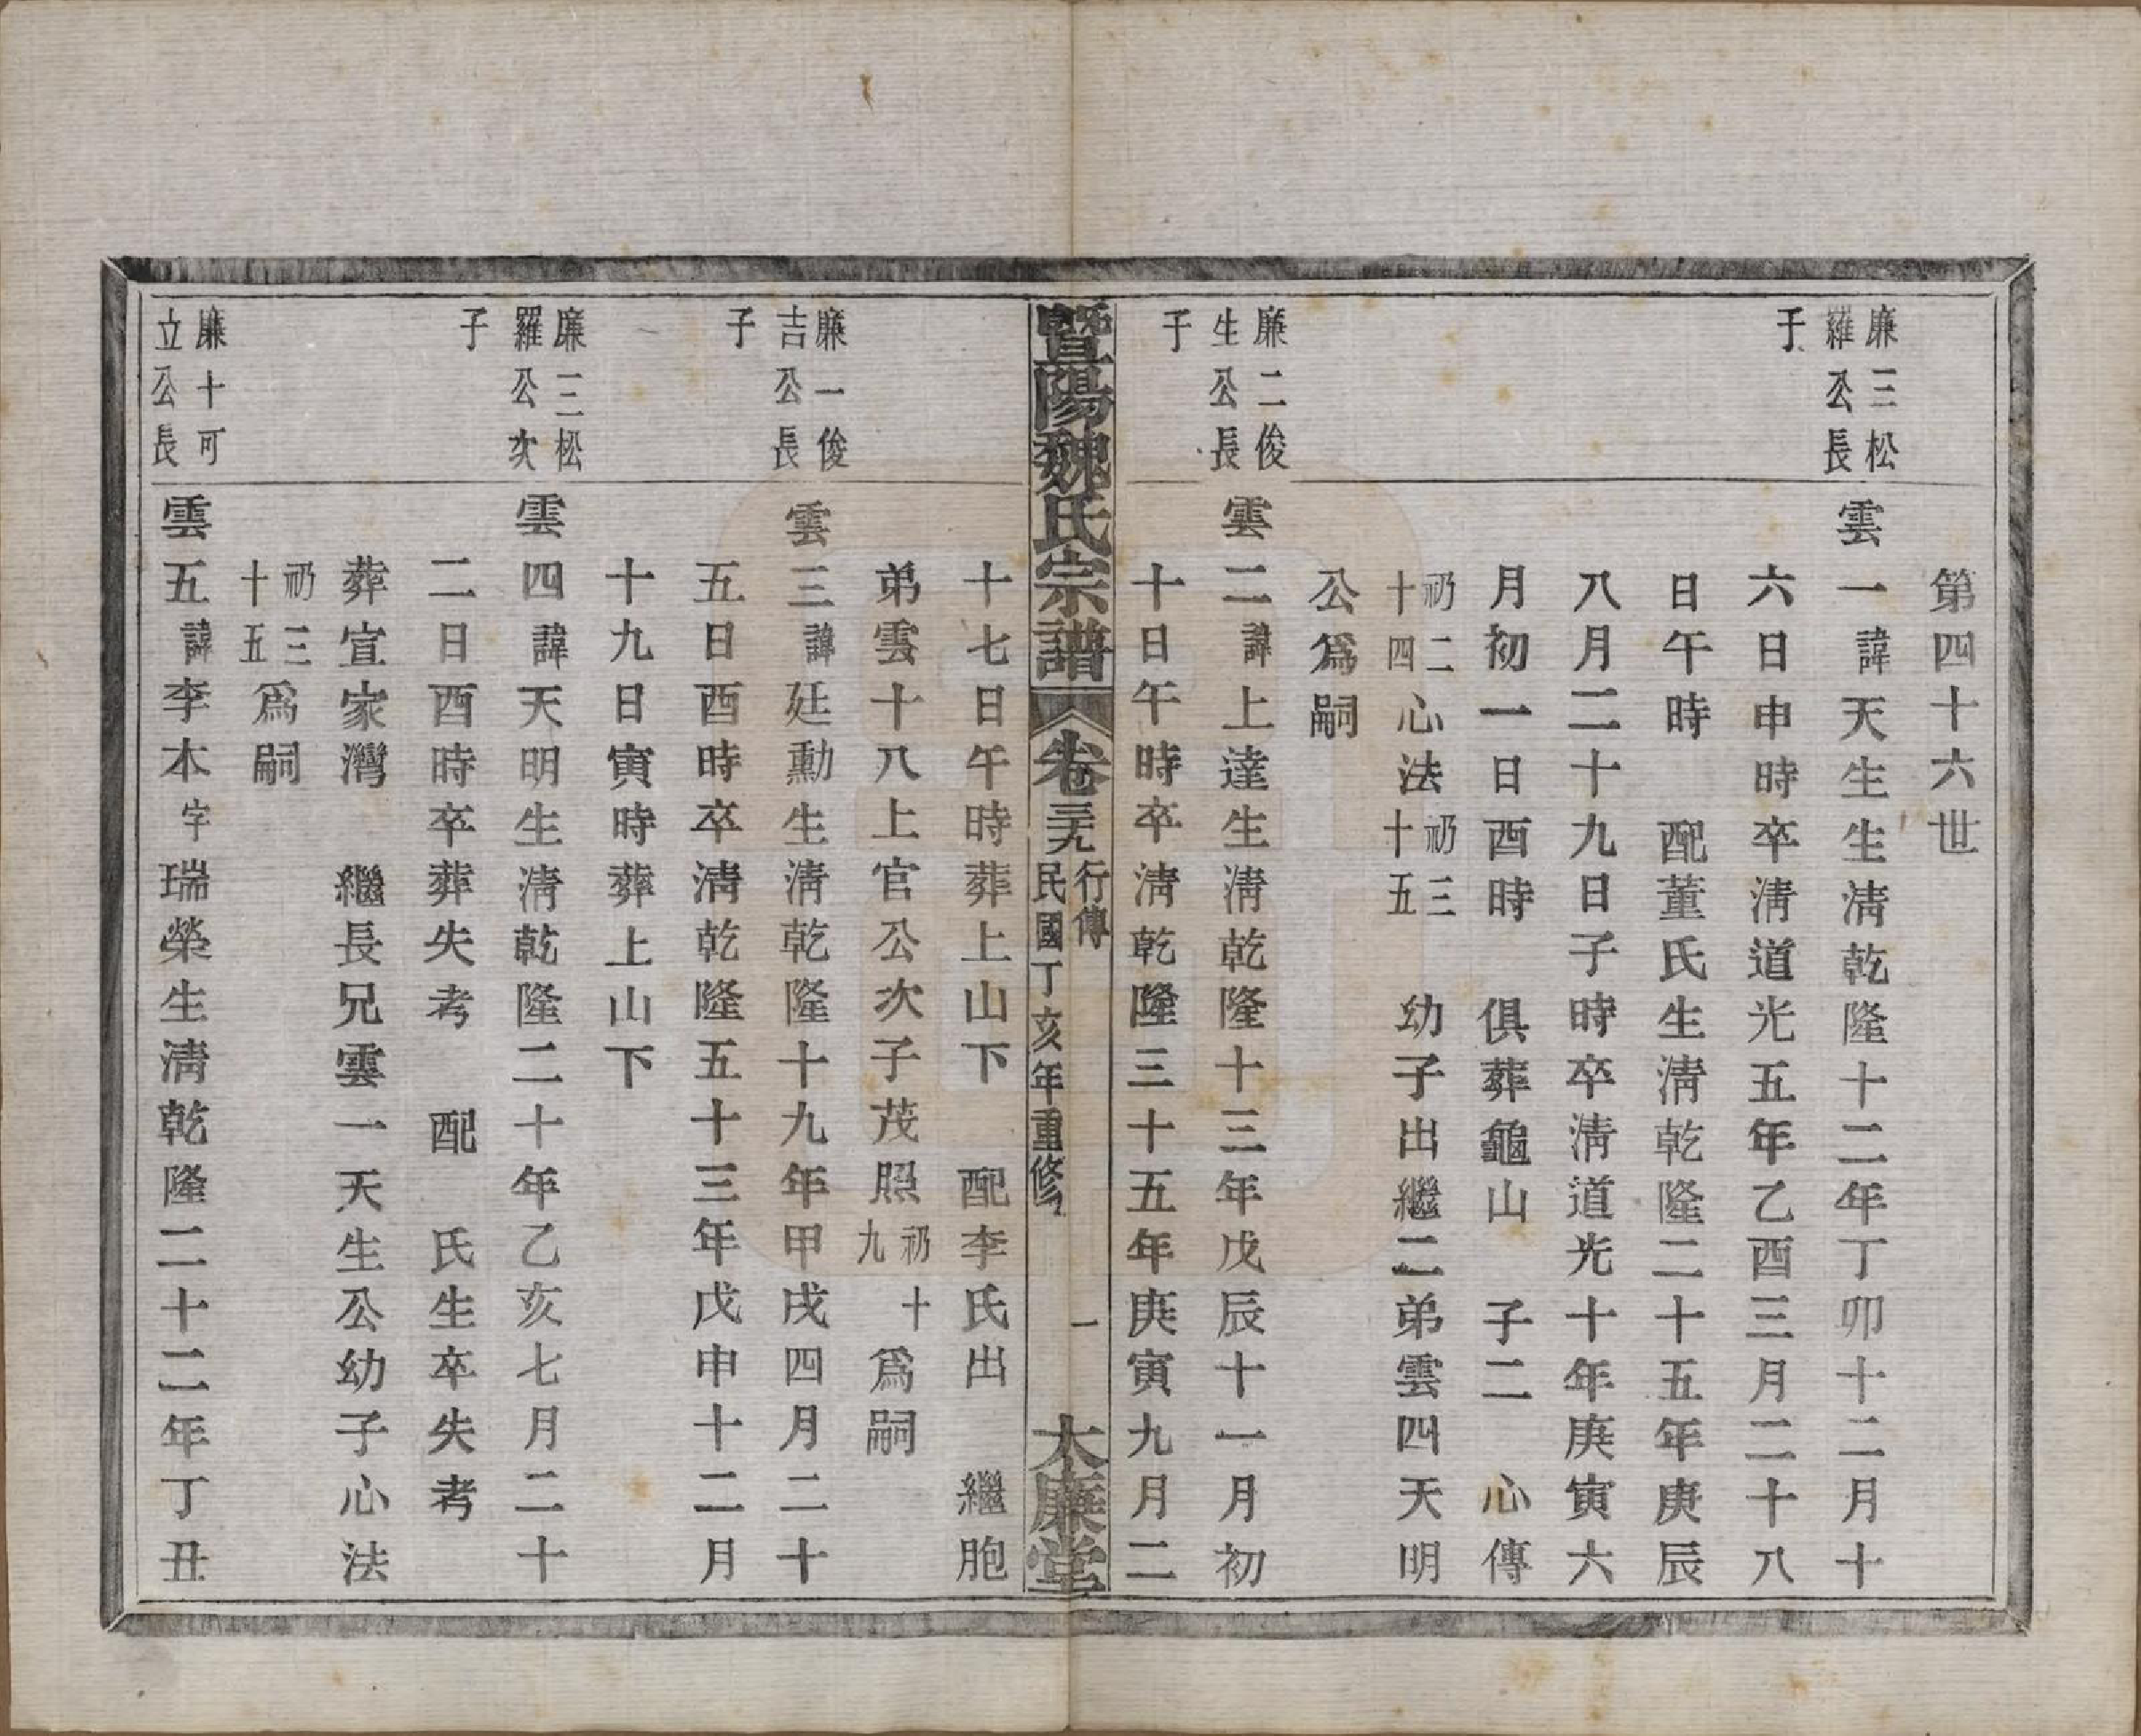 第四十六世
廉三松
羅公長
子
雲一諱天生生淸乾隆十二年丁卯十二月十
六日申時卒淸道光五年乙酉三月二十八
日午時　配董氏生淸乾隆二十五年庚辰
八月二十九日子時卒淸道光十年庚寅六
月初一日酉時　俱葬龜山　子二　心傳
礽二十四心法礽三十五　幼子出繼二弟雲四天明
公爲嗣
廉二俊
生公長
子
雲二諱上達生淸乾隆十三年戊辰十一月初
十日午時卒淸乾隆三十五年庚寅九月二
暨陽魏氏宗譜　卷三九　行傳　民國丁亥年重修　一　大廉堂
十七日午時葬上山下　配李氏出　繼胞
弟雲十八上官公次子茂照礽十九爲嗣
廉一俊
吉公長
子
雲三諱廷勳生淸乾隆十九年甲戌四月二十
五日酉時卒淸乾隆五十三年戊申十二月
十九日寅時葬上山下
廉三松
羅公次
子
雲四諱天明生淸乾隆二十年乙亥七月二十
二日酉時卒葬失考　配　氏生卒失考
葬宣家灣　繼長兄雲一天生公幼子心法
礽三十五爲嗣
廉十可
立公長
雲五諱李本字瑞榮生淸乾隆二十二年丁丑